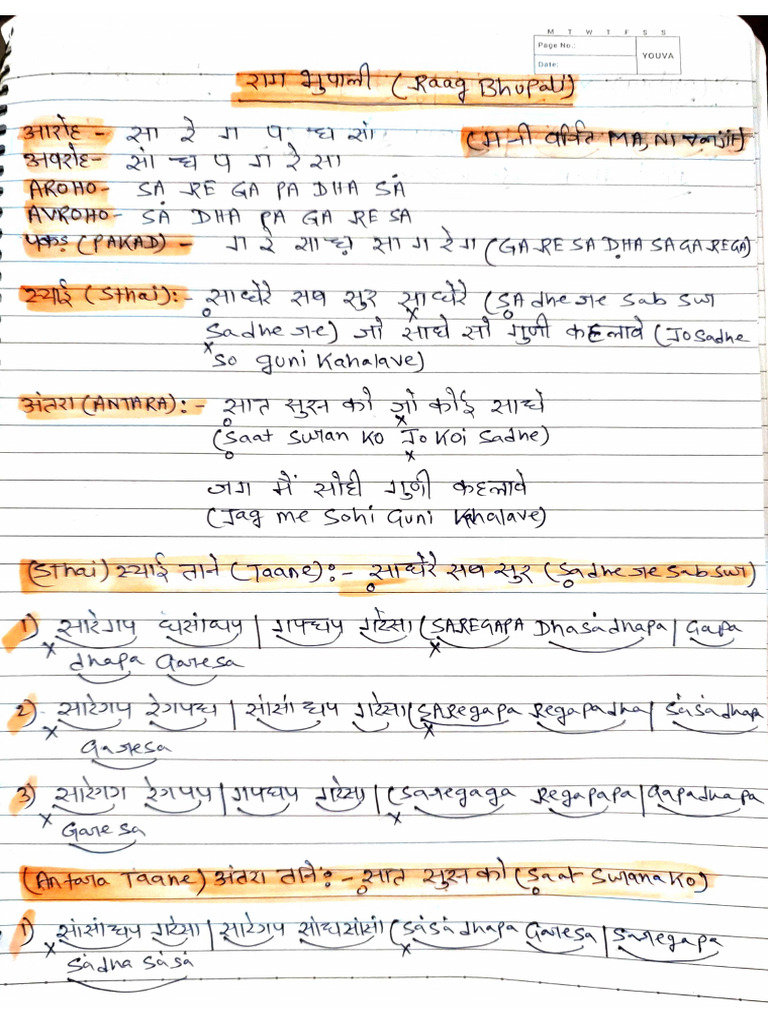 M T W T F S S
Page No.:
Date:
YOUVA
राग भुपाली (Raag Bhupali)
आरोह - सा रे ग प ध सां (म नी वर्जित MA, NI वर्जित)
अवरोह- सां ध प ग रे सा
AROHO- SA RE GA PA DHA SȦ
AVROHO- SȦ DHA PA GA RE SA
पकड़ (PAKAD) - ग रे सा ध़ सा ग रे ग (GA RE SA DḤA SA GA RE GA)
स्थाई (Sthai):- साधेरे सब सुर साधेरे (SAdhe re sab sur
Sadhe re) जो साधे सो गुणी कहलावे (Jo sadhe
so guni Kahalave)
अंतरा (ANTARA):- सात सुरन को जो कोई साधे
(Saat Suran Ko Jo Koi Sadhe)
जग मैं सोही गुणी कहलावे
(Jag me Sohi Guni Kahalave)
(Sthai) स्थाई ताने (Taane):- साधेरे सब सुर (Sadhe re sab sur)
1) सारेगप धसांधप | गपधप गरेसा (SAREGAPA Dhasȧdhapa | Gapa
x dhapa Garesa x
2) सारेगप रेगपध | सांसांधप गरेसा (SARegapa Regapadha | sȧsȧdhapa
x Garesa x
3) सारेगग रेगपप | गपधप गरेसा | (Saregaga Regapapa | Gapadhapa
x Garesa x
(Antara Taane) अंतरा ताने:- सात सुरन को (Saat Surana Ko)
1) सांसांधप गरेसा | सारेगप सांधसांसां (Sȧsȧdhapa Garesa | Saregapa
x sȧdha sȧsȧ x